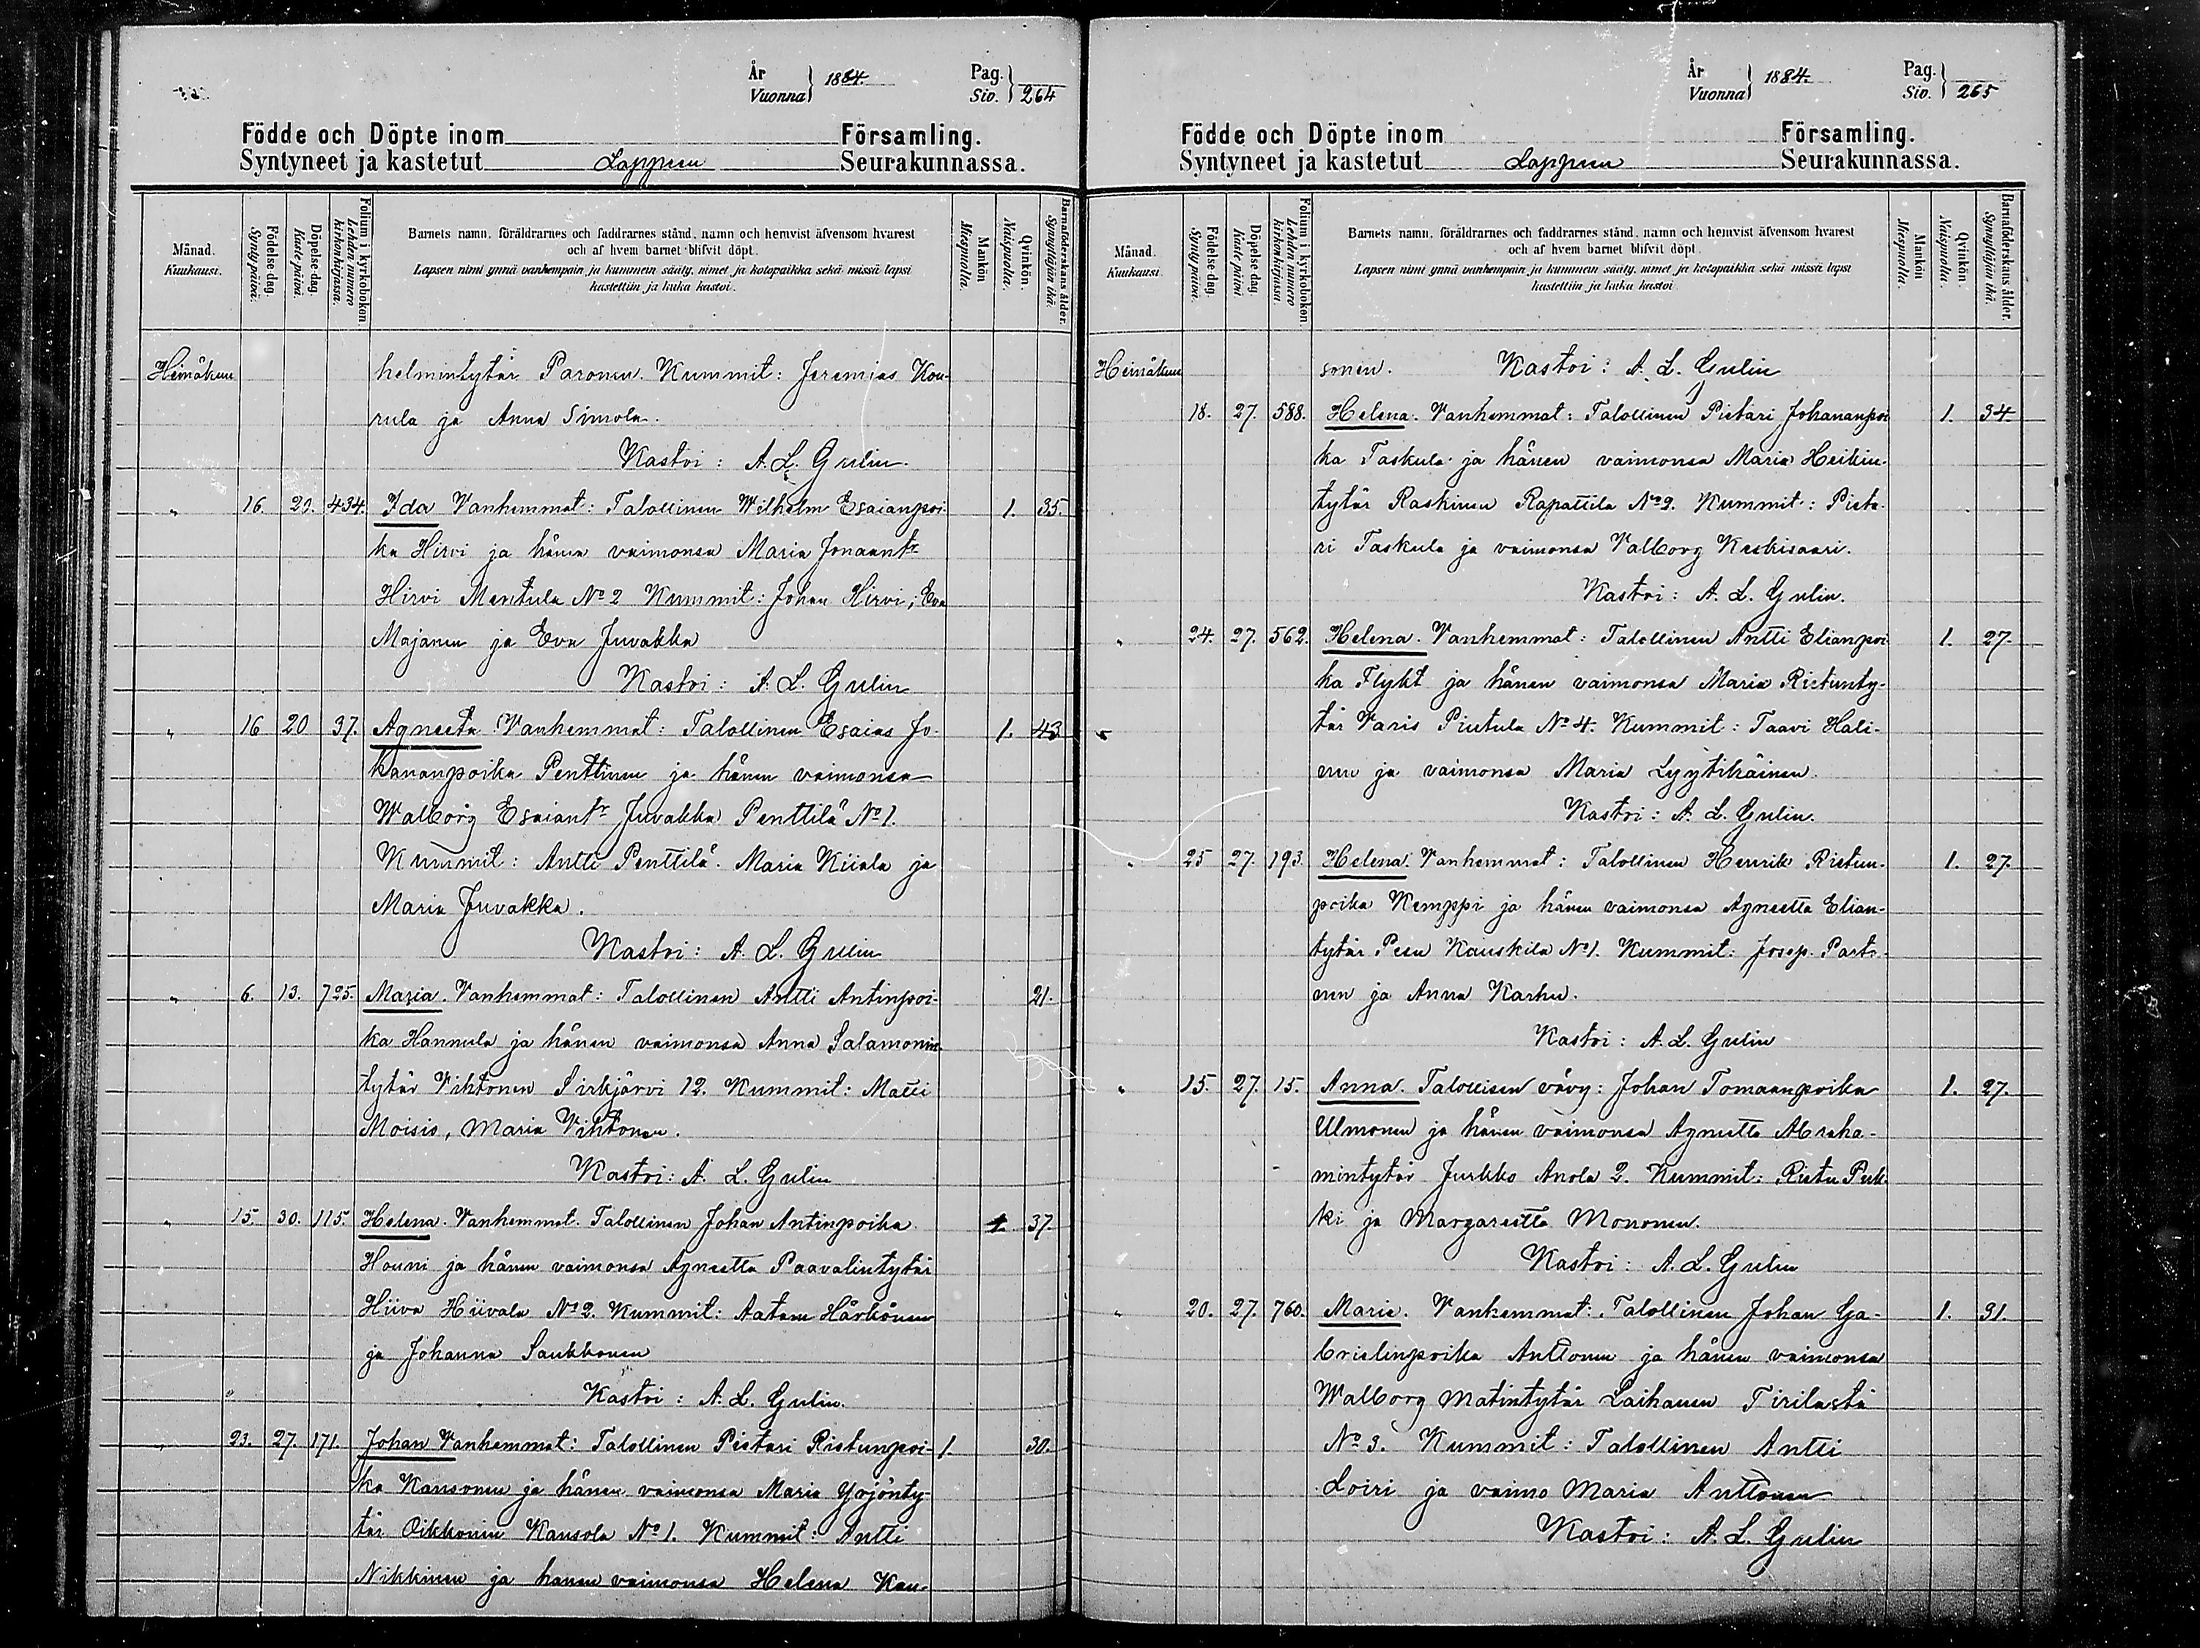 År
Vuonna } 1884.
Pag.
Siv. } 264
Födde och Döpte inom Församling.
Syntyneet ja kastetut Lappeen Seurakunnassa.
Månad.
Kuukausi.
Födelse dag.
Synty päivä.
Döpelse dag.
Kaste päivä.
Folium i kyrkoboken
Lehden numero kirkonkirjassa.
Barnets namn, föräldrarnes och faddrarnes stånd, namn och hemvist äfvensom hvarest
och af hvem barnet blifvit döpt.
Lapsen nimi ynnä vanhempain ja kummein sääty, nimet ja kotopaikka sekä missä lapsi
kastettiin ja kuka kastoi.
Mankön
Miespuolta.
Qvinkön.
Naispuolta.
Barnaföderskans ålder.
Synnyttäjän ikä.
Heinäkuu helmintytär Paronen. Kummit: Jeremias Kou-
rula ja Anna Simola.
Kastoi: A. L. Gulin.
" 16. 20. 434. Ida Vanhemmat: Talollinen Wilhelm Esaianpoi- 1. 35.
ka Hirvi ja hänen vaimonsa Maria Jonaantr
Hirvi Mentula No 2 Kummit: Johan Hirvi, Eva
Majanen ja Eva Juvakka
Kastoi: A. L. Gulin
" 16 20 37. Agneeta Vanhemmat: Talollinen Esaias Jo- 1. 43
hananpoika Penttinen ja hänen vaimonsa
Walborg Esaiantr Juvakka Penttilä No 1.
Kummit: Antti Penttilä. Maria Kiiala ja
Maria Juvakka.
Kastoi: A. L. Gulin
" 6. 13. 725. Maria. Vanhemmat: Talollinen Antti Antinpoi- 21.
ka Hannula ja hänen vaimonsa Anna Salamonin-
tytär Vihtonen Sirkjärvi 12. Kummit: Matti
Moisio, Maria Vihtonen.
Kastoi: A. L. Gulin
" 15. 30. 115. Helena. Vanhemmat. Talollinen Johan Antinpoika 1. 37.
Houni ja hänen vaimonsa Agneetta Paavalintytär
Hiiva Hiivala No 2. Kummit: Aatam Härkönen
ja Johanna Saukkonen
Kastoi: A. L. Gulin.
" 23. 27. 171. Johan Vanhemmat: Talollinen Pietari Ristunpoi- 1. 30.
ka Kansonen ja hänen vaimonsa Maria Yrjönty-
tär Oikkonen Kansola No 1. Kummit: Antti
Nikkinen ja hänen vaimonsa Helena Kan-
År
Vuonna } 1884.
Pag.
Siv. } 265
Födde och Döpte inom Församling.
Syntyneet ja kastetut Lappeen Seurakunnassa.
Månad.
Kuukausi.
Födelse dag.
Synty päivä.
Döpelse dag.
Kaste päivä
Folium i kyrkoboken
Lehden numero kirkonkirjassa.
Barnets namn, föräldrarnes och faddrarnes stånd, namn och hemvist äfvensom hvarest
och af hvem barnet blifvit döpt.
Lapsen nimi ynnä vanhempain ja kummein sääty, nimet ja kotopaikka sekä missä lapsi
kastettiin ja kuka kastoi.
Mankön
Miespuolta.
Qvinkön.
Naispuolta.
Barnaföderskans ålder.
Synnyttäjän ikä.
Heinäkuu sonen. Kastoi: A. L. Gulin
18. 27. 588. Helena. Vanhemmat: Talollinen Pietari Johananpoi 1. 34.
ka Taskula ja hänen vaimonsa Maria Heikin-
tytär Raskinen Rapattila No 9. Kummit: Pieta-
ri Taskula ja vaimonsa Valborg Keskisaari.
Kastoi: A. L. Gulin.
" 24. 27. 562. Helena. Vanhemmat: Talollinen Antti Elianpoi 1. 27.
ka Flykt ja hänen vaimonsa Maria Ristunty-
tär Varis Piutula No 4. Kummit: Taavi Hali-
nen ja vaimonsa Maria Lyytikäinen.
Kastoi: A. L. Gulin.
" 25 27. 193. Helena. Vanhemmat: Talollinen Henrik Ristun- 1. 27.
poika Kemppi ja hänen vaimonsa Agneetta Elian-
tytär Pesu Kauskila No 1. Kummit: Josep. Parta-
nen ja Anna Karhu.
Kastoi: A. L. Gulin
" 15. 27. 15. Anna. Talollisen vävy: Johan Tomaanpoika 1. 27.
Ulmonen ja hänen vaimonsa Agneetta Abraha-
mintytär Jurkko Anola 2. Kummit: Ristu Puk-
ki ja Margareetta Mononen.
Kastoi: A. L. Gulin
" 20. 27. 760. Maria. Vanhemmat: Talollinen Johan Ga- 1. 31.
brielinpoika Anttonen ja hänen vaimonsa
Walborg Matintytär Laihanen Tirilästä
No 3. Kummit: Talollinen Antti
Loiri ja vaimo Maria Anttonen
Kastoi: A. L. Gulin